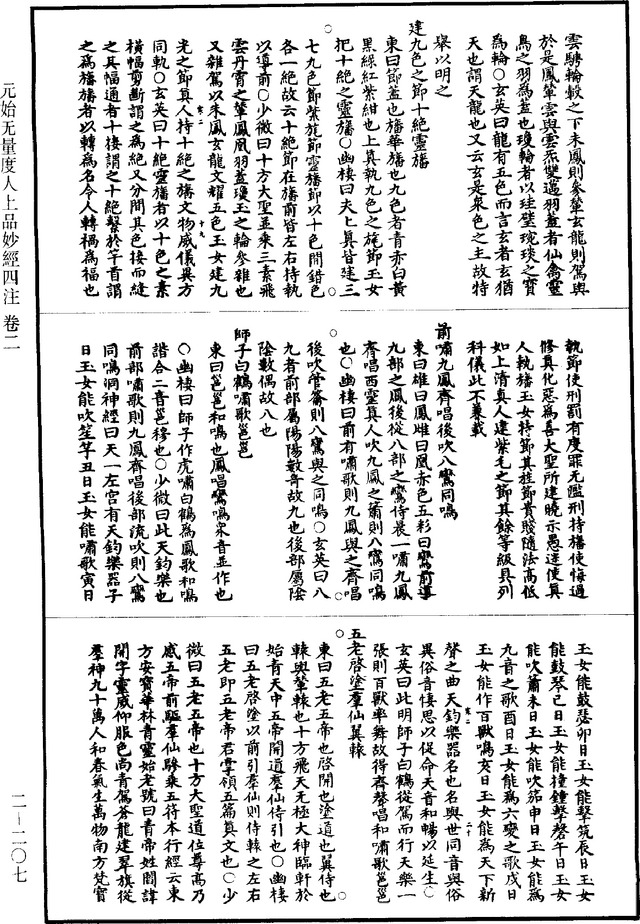 雲騑輪轂之下未鳳則麥輦玄龍則駕與
於是鳳輦雲與雲炁雙邁羽蓋者仙禽靈
鳥之羽為蓋也瓊輪者以珪璧琬琰之寶
為輪○玄英曰龍有五色而言玄者玄猶
天也謂天龍也又云玄是衆色之主故特
舉以明之
建九色之節十絶靈旛
東曰節蓋也旛華旛也九色者青赤白黄
黑綠紅紫紺也上真執九色之旄節玉女
把十絶之靈旛○幽棲曰夫上真皆建三
七九色節紫旄節靈旛節以十色間錯色
各一絶故云十絶節在旛前皆左右侍執
以導前○少微曰十方大聖並乘三素飛
雲丹霄之輦鳳凰羽蓋瓊玉之輪參雜也
又雜駕以朱鳳玄龍文耀五色玉女建九
光之節真人持十絶之旛文物威儀異方
同軌○玄英曰十絶靈旛者以十色之素
横幅剪斷謂之為絶又分間其色接而縫
之其幅通者十接謂之十絶繫於竿首謂
之為旛旛者以轉為名令人轉禍為福也
執節使刑罰有度罪无濫刑持旛使悔過
修真化惡為善大聖所建曉示愚迷使真
人執旛玉女持節其旌節貴賤隨法高低
如上清真人建紫毛之節其餘等級具列
科儀此不兼載
前嘯九鳳齊唱後吹八鸞同鳴
東曰雄曰鳳雌曰凰赤色五彩曰鸞前導
九部之鳳後從八部之鸞侍晨一嘯九鳳
齊唱西靈真人吹九鳳之簫則八鸞同鳴
也○幽棲曰前有嘯歌則九鳳與之齊唱
後吹管籥則八鸞與之同鳴○玄英曰八
九者前部屬陽陽數奇故九也後部屬陰
陰數偶故八也
師子白鶴嘯歌邕邕
東曰邕邕和鳴也鳳唱鸞鳴衆音並作也
○幽棲曰師子作虎嘯白鶴為鳳歌和鳴
諧合二音邕穆也○少微曰此天鈞樂也
前部嘯歌則九鳳齊唱後部流吹則八鸞
同鳴洞神經曰天一左宮有天鈞樂器子
日玉女能吹笙竽丑日玉女能嘯歌寅日
玉女能鼓瑟卯日玉女能擊筑辰日玉女
能鼓琴巳日玉女能撞鍾擊磬午日玉女
能吹簫未日玉女能吹笳申日玉女能為
九音之歌酉日玉女能為六變之歌戌日
玉女能作百獸鳴亥日玉女能為天下新
聲之曲天鈞樂器名也名與世同音與俗
異俗音悽思以促命天音和暢以延生○
玄英曰此明師子白鶴從駕而行天樂一
張則百獸率舞故得齊聲唱和嘯歌邕邕
五老啓塗羣仙翼轅
東曰五老五帝也啓開也塗道也翼侍也
轅與輦轅也十方飛天无極大神臨軒於
始青天中五帝開道羣仙侍引也○幽棲
曰五老啓塗以前引羣仙則侍轅之左右
五老即五老帝君掌領五篇真文也○少
微曰五老五帝也十方大聖道位尊高乃
感五帝前驅羣仙驂乘五符本行經云東
方安寶華林青靈始老號曰青帝姓閻諱
開字靈威仰服色尚青駕蒼龍建翠旗從
羣神九十萬人和春氣生萬物南方梵寶
元始无量度人上品妙經四注 卷二
二－二〇七